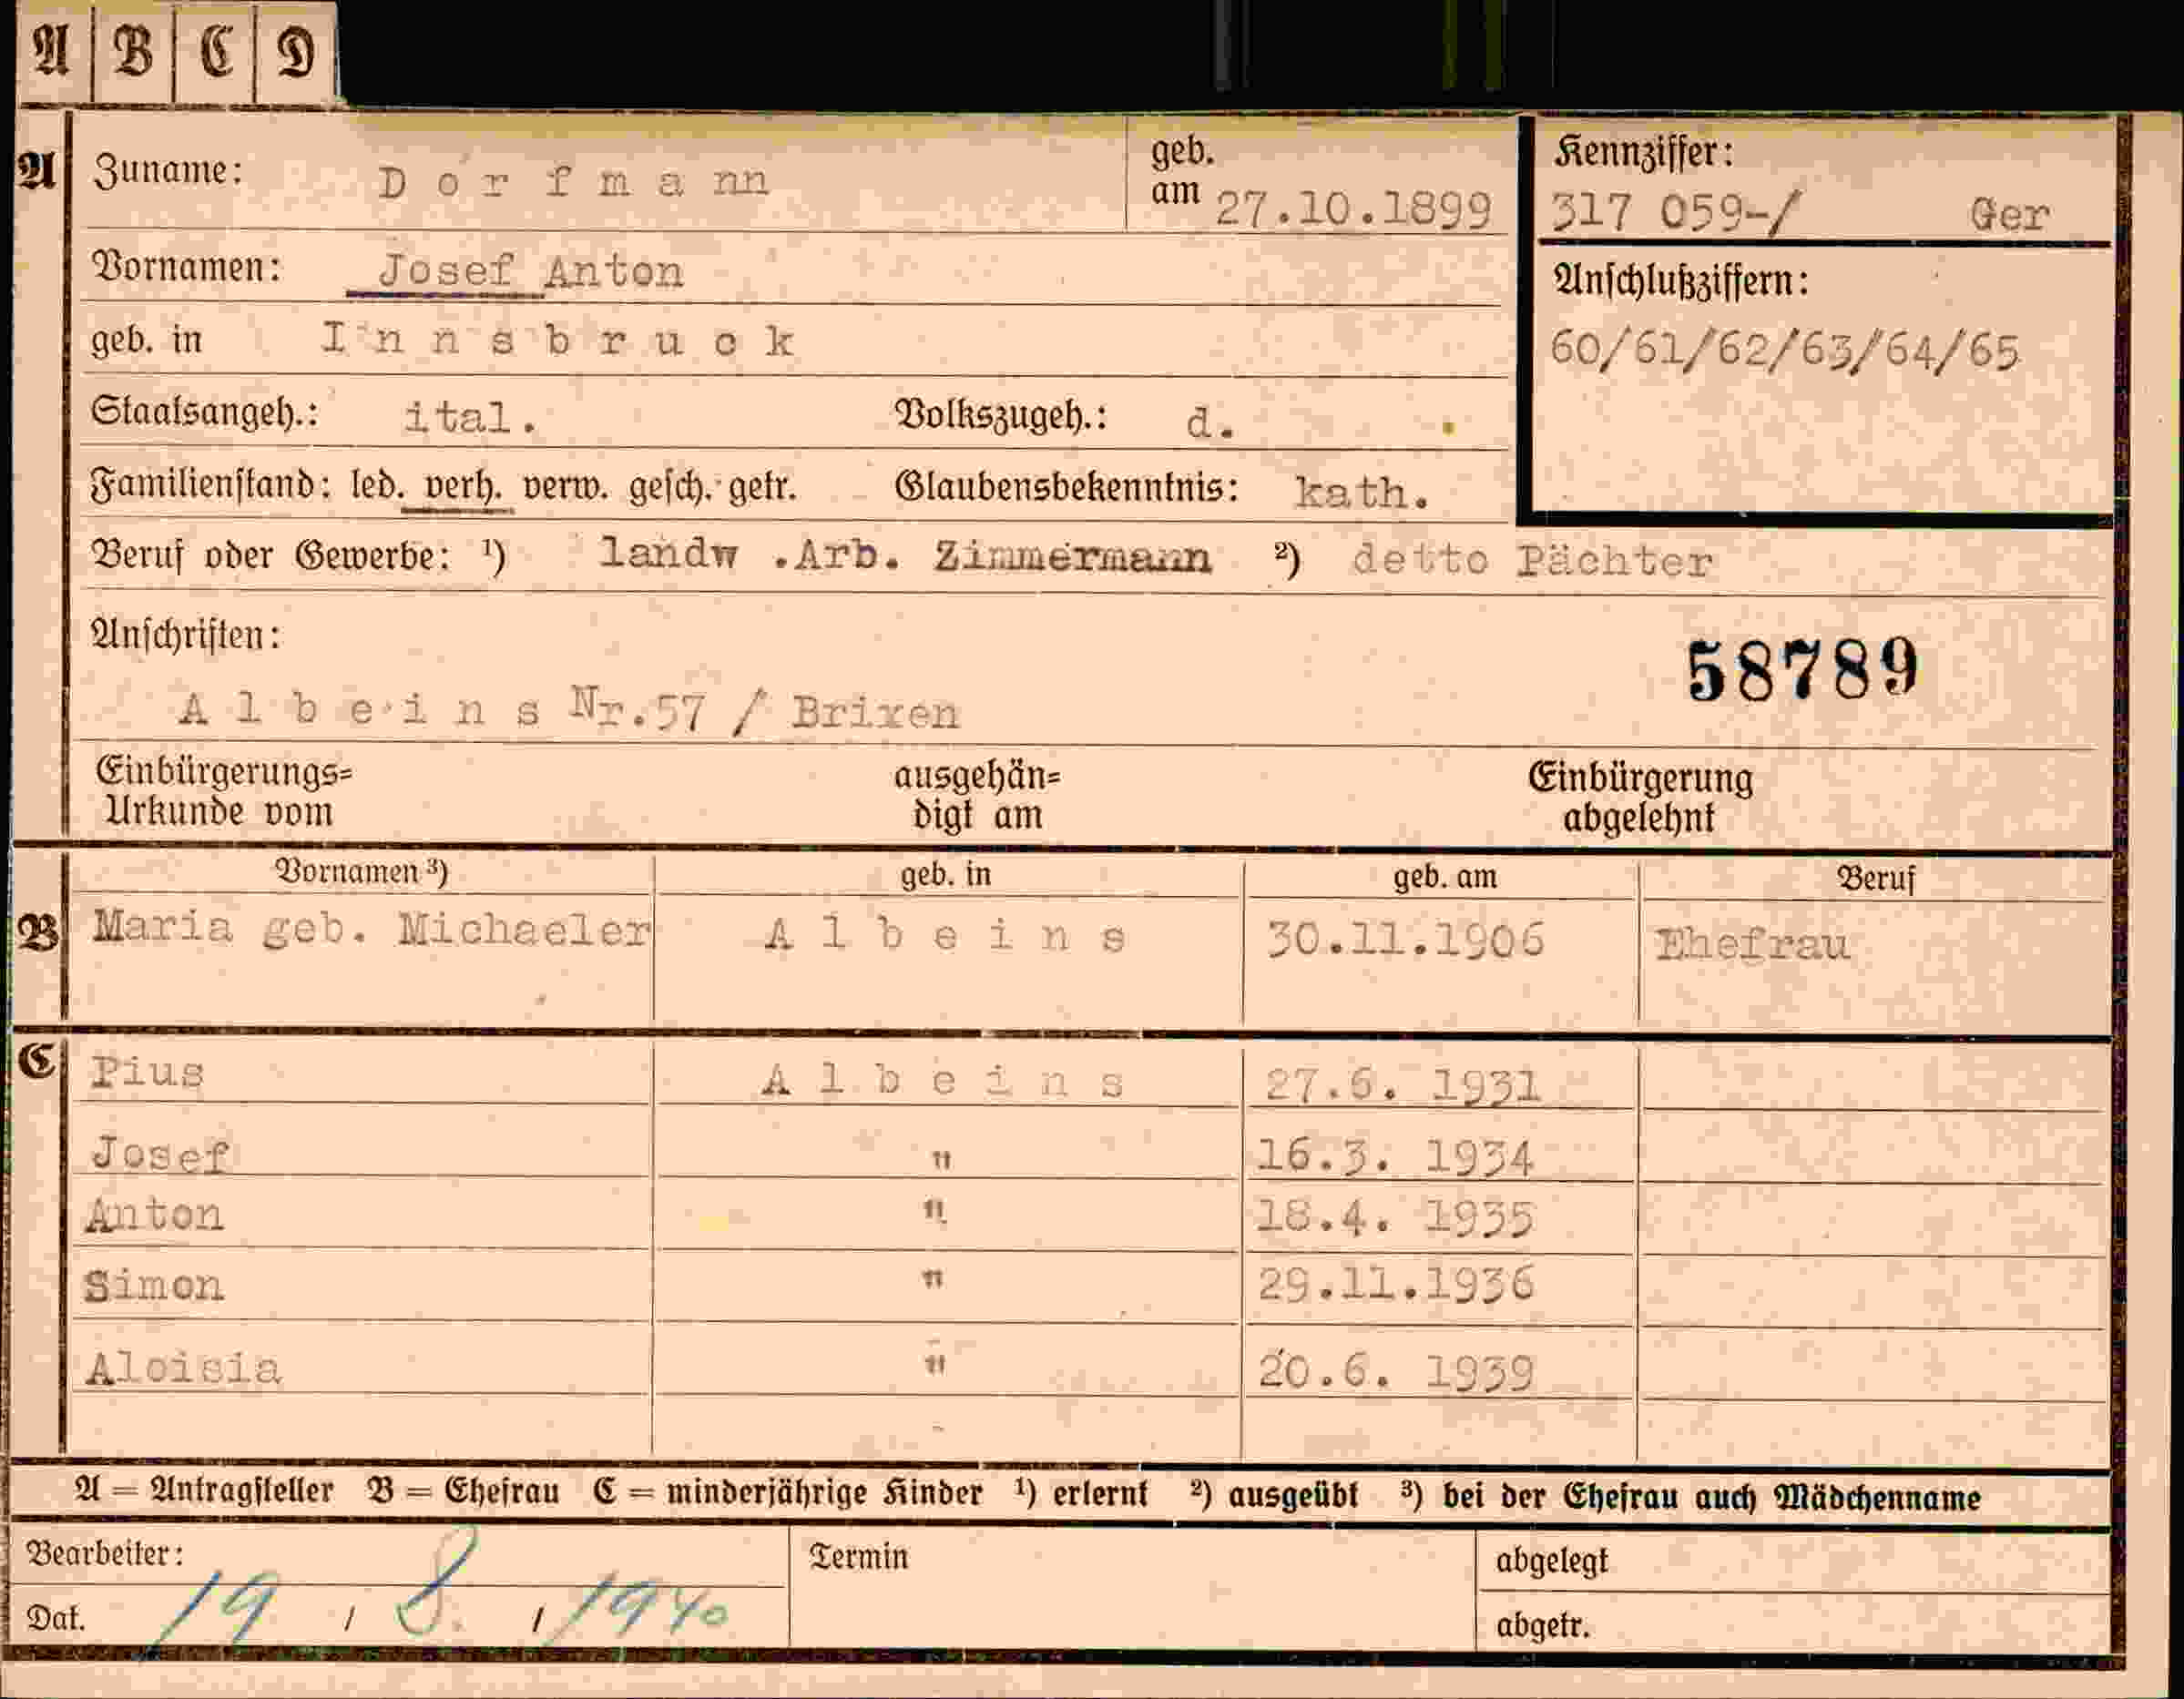 A B C D
A Zuname: Dorfmann geb. am 27.10.1899 Kennziffer: 317 059-/ Ger
Vornamen: Josef Anton Anschlußziffern:
geb. in Innsbruck 60/61/62/63/64/65
Staatsangeh.: ital. Volkszugeh.: d.
Familienstand: led. verh. verw. gesch. getr. Glaubensbekenntnis: kath.
Beruf oder Gewerbe: ¹) landw .Arb. Zimmermann ²) detto Pächter
Anschriften: 58789
Albeins Nr.57 / Brixen
Einbürgerungs= ausgehän= Einbürgerung
Urkunde vom digt am abgelehnt
Vornamen ³) geb. in geb. am Beruf
B Maria geb. Michaeler Albeins 30.11.1906 Ehefrau
C Pius Albeins 27.6. 1931
Josef " 16.3. 1934
Anton " 18.4. 1935
Simon " 29.11.1936
Aloisia " 20.6. 1939
A = Antragsteller B = Ehefrau C = minderjährige Kinder ¹) erlernt ²) ausgeübt ³) bei der Ehefrau auch Mädchenname
Bearbeiter: Termin abgelegt
Dat. 19 / 8. / 1940 abgetr.